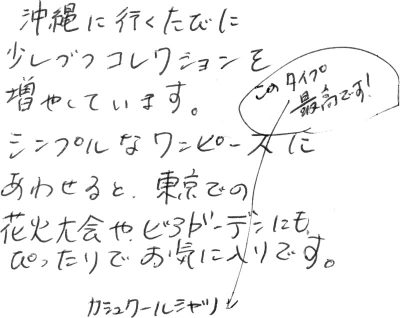 沖縄に行くたびに
少しづつコレクションを
増やしています。
このタイプ
最高です!
シンプルなワンピースに
あわせると、東京での
花火大会や、ビアガーデンにも、
ぴったりで お気に入りです。
カシュクールシャツ